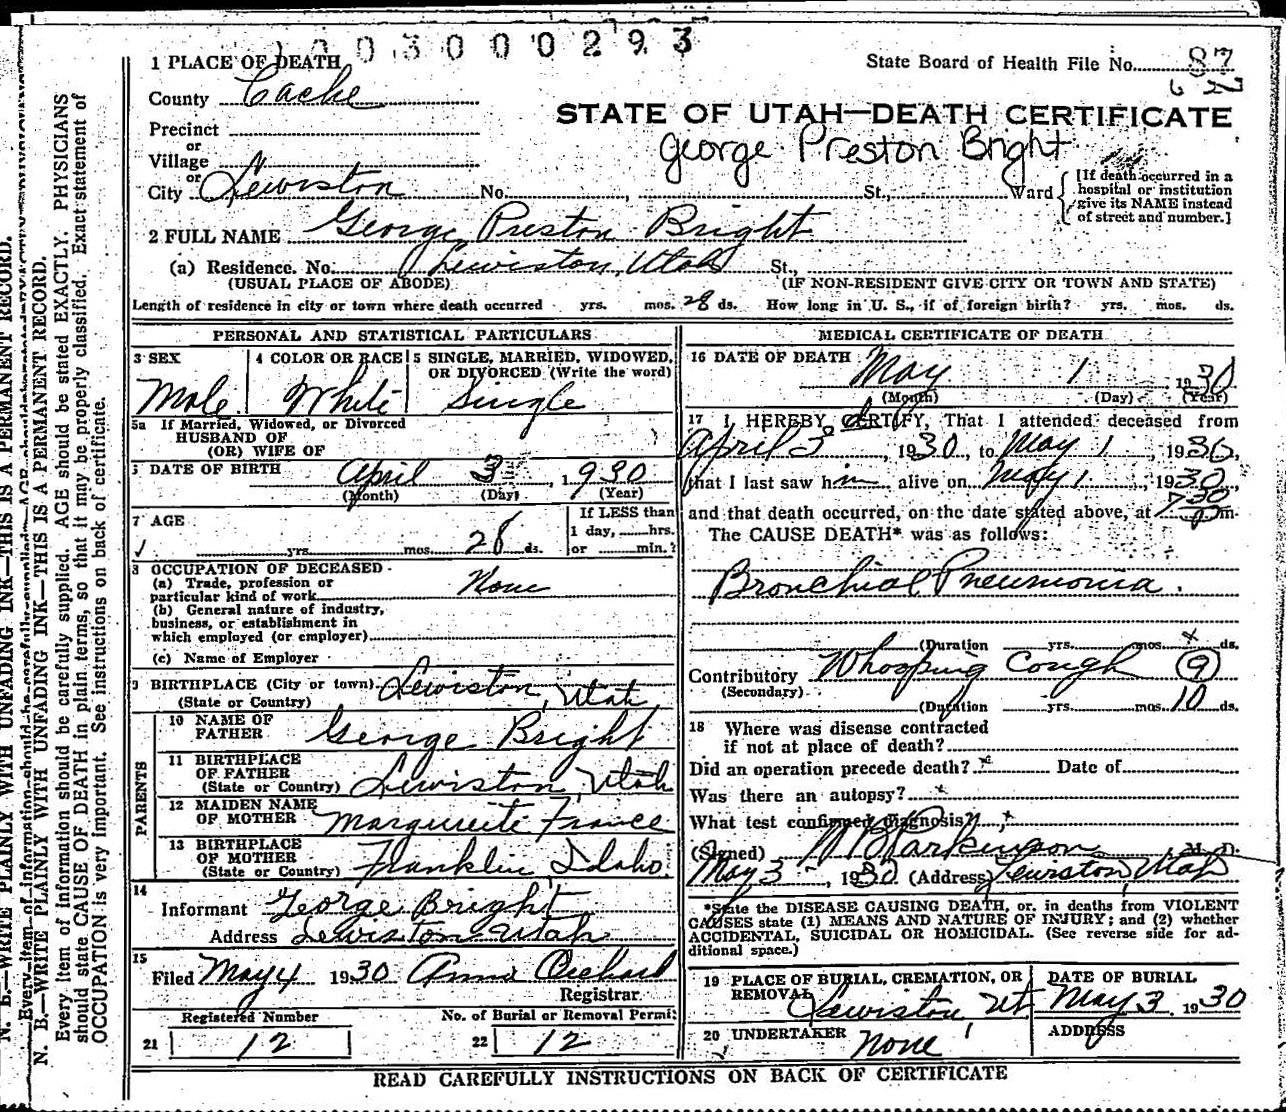 1003000293
State Board of Health File No. 87
1 PLACE OF DEATH
County Cache
STATE OF UTAH—DEATH CERTIFICATE
George Preston Bright
Precinct
or
Village
or
City Lewiston No. , St., Ward
[If death occurred in a
hospital or institution
give its NAME instead
of street and number.]
2 FULL NAME George Preston Bright
(a) Residence. No. Lewiston, Utah St.,
(USUAL PLACE OF ABODE) (IF NON-RESIDENT GIVE CITY OR TOWN AND STATE)
Length of residence in city or town where death occurred yrs. mos. 28 ds. How long in U. S., if of foreign birth? yrs. mos. ds.
PERSONAL AND STATISTICAL PARTICULARS
3 SEX
Male
4 COLOR OR RACE
White
5 SINGLE, MARRIED, WIDOWED,
OR DIVORCED (Write the word)
Single
5a If Married, Widowed, or Divorced
HUSBAND OF
(OR) WIFE OF
6 DATE OF BIRTH April 3, 1930
(Month) (Day) (Year)
7 AGE
yrs. mos. 28 ds.
If LESS than
1 day, hrs.
or min.?
8 OCCUPATION OF DECEASED
(a) Trade, profession or
particular kind of work None
(b) General nature of industry,
business, or establishment in
which employed (or employer)
(c) Name of Employer
9 BIRTHPLACE (City or town) Lewiston, Utah
(State or Country)
PARENTS
10 NAME OF
FATHER George Bright
11 BIRTHPLACE
OF FATHER
(State or Country) Lewiston, Utah
12 MAIDEN NAME
OF MOTHER Marguerite France
13 BIRTHPLACE
OF MOTHER
(State or Country) Franklin, Idaho
14
Informant George Bright
Address Lewiston Utah
15
Filed May 4 1930 Anna Orchard
Registrar.
Registered Number
21 12
No. of Burial or Removal Permit
22 12
MEDICAL CERTIFICATE OF DEATH
16 DATE OF DEATH May 1, 1930
(Month) (Day) (Year)
17 I HEREBY CERTIFY, That I attended deceased from
April 3, 1930, to May 1, 1930,
that I last saw him alive on May 1, 1930,
and that death occurred, on the date stated above, at 7:30 pm.
The CAUSE DEATH* was as follows:
Bronchial Pneumonia.
(Duration yrs. mos. ds.
Contributory Whooping Cough 9
(Secondary)
(Duration yrs. mos. 10 ds.
18 Where was disease contracted
if not at place of death?
Did an operation precede death? x Date of
Was there an autopsy? x
What test confirmed diagnosis? x
(Signed) W B Parkinson, M. D.
May 3, 1930 (Address) Lewiston, Utah
*State the DISEASE CAUSING DEATH, or, in deaths from VIOLENT
CAUSES state (1) MEANS AND NATURE OF INJURY; and (2) whether
ACCIDENTAL, SUICIDAL OR HOMICIDAL. (See reverse side for ad-
ditional space.)
19 PLACE OF BURIAL, CREMATION, OR
REMOVAL Lewiston, Ut
DATE OF BURIAL
May 3 1930
20 UNDERTAKER None
ADDRESS
READ CAREFULLY INSTRUCTIONS ON BACK OF CERTIFICATE
N. B.—WRITE PLAINLY WITH UNFADING INK—THIS IS A PERMANENT RECORD.
N. B.—WRITE PLAINLY WITH UNFADING INK—THIS IS A PERMANENT RECORD.
Every item of Information should be carefully supplied. AGE should be stated EXACTLY. PHYSICIANS
should state CAUSE OF DEATH in plain terms, so that it may be properly classified. Exact statement of
OCCUPATION is very important. See instructions on back of certificate.